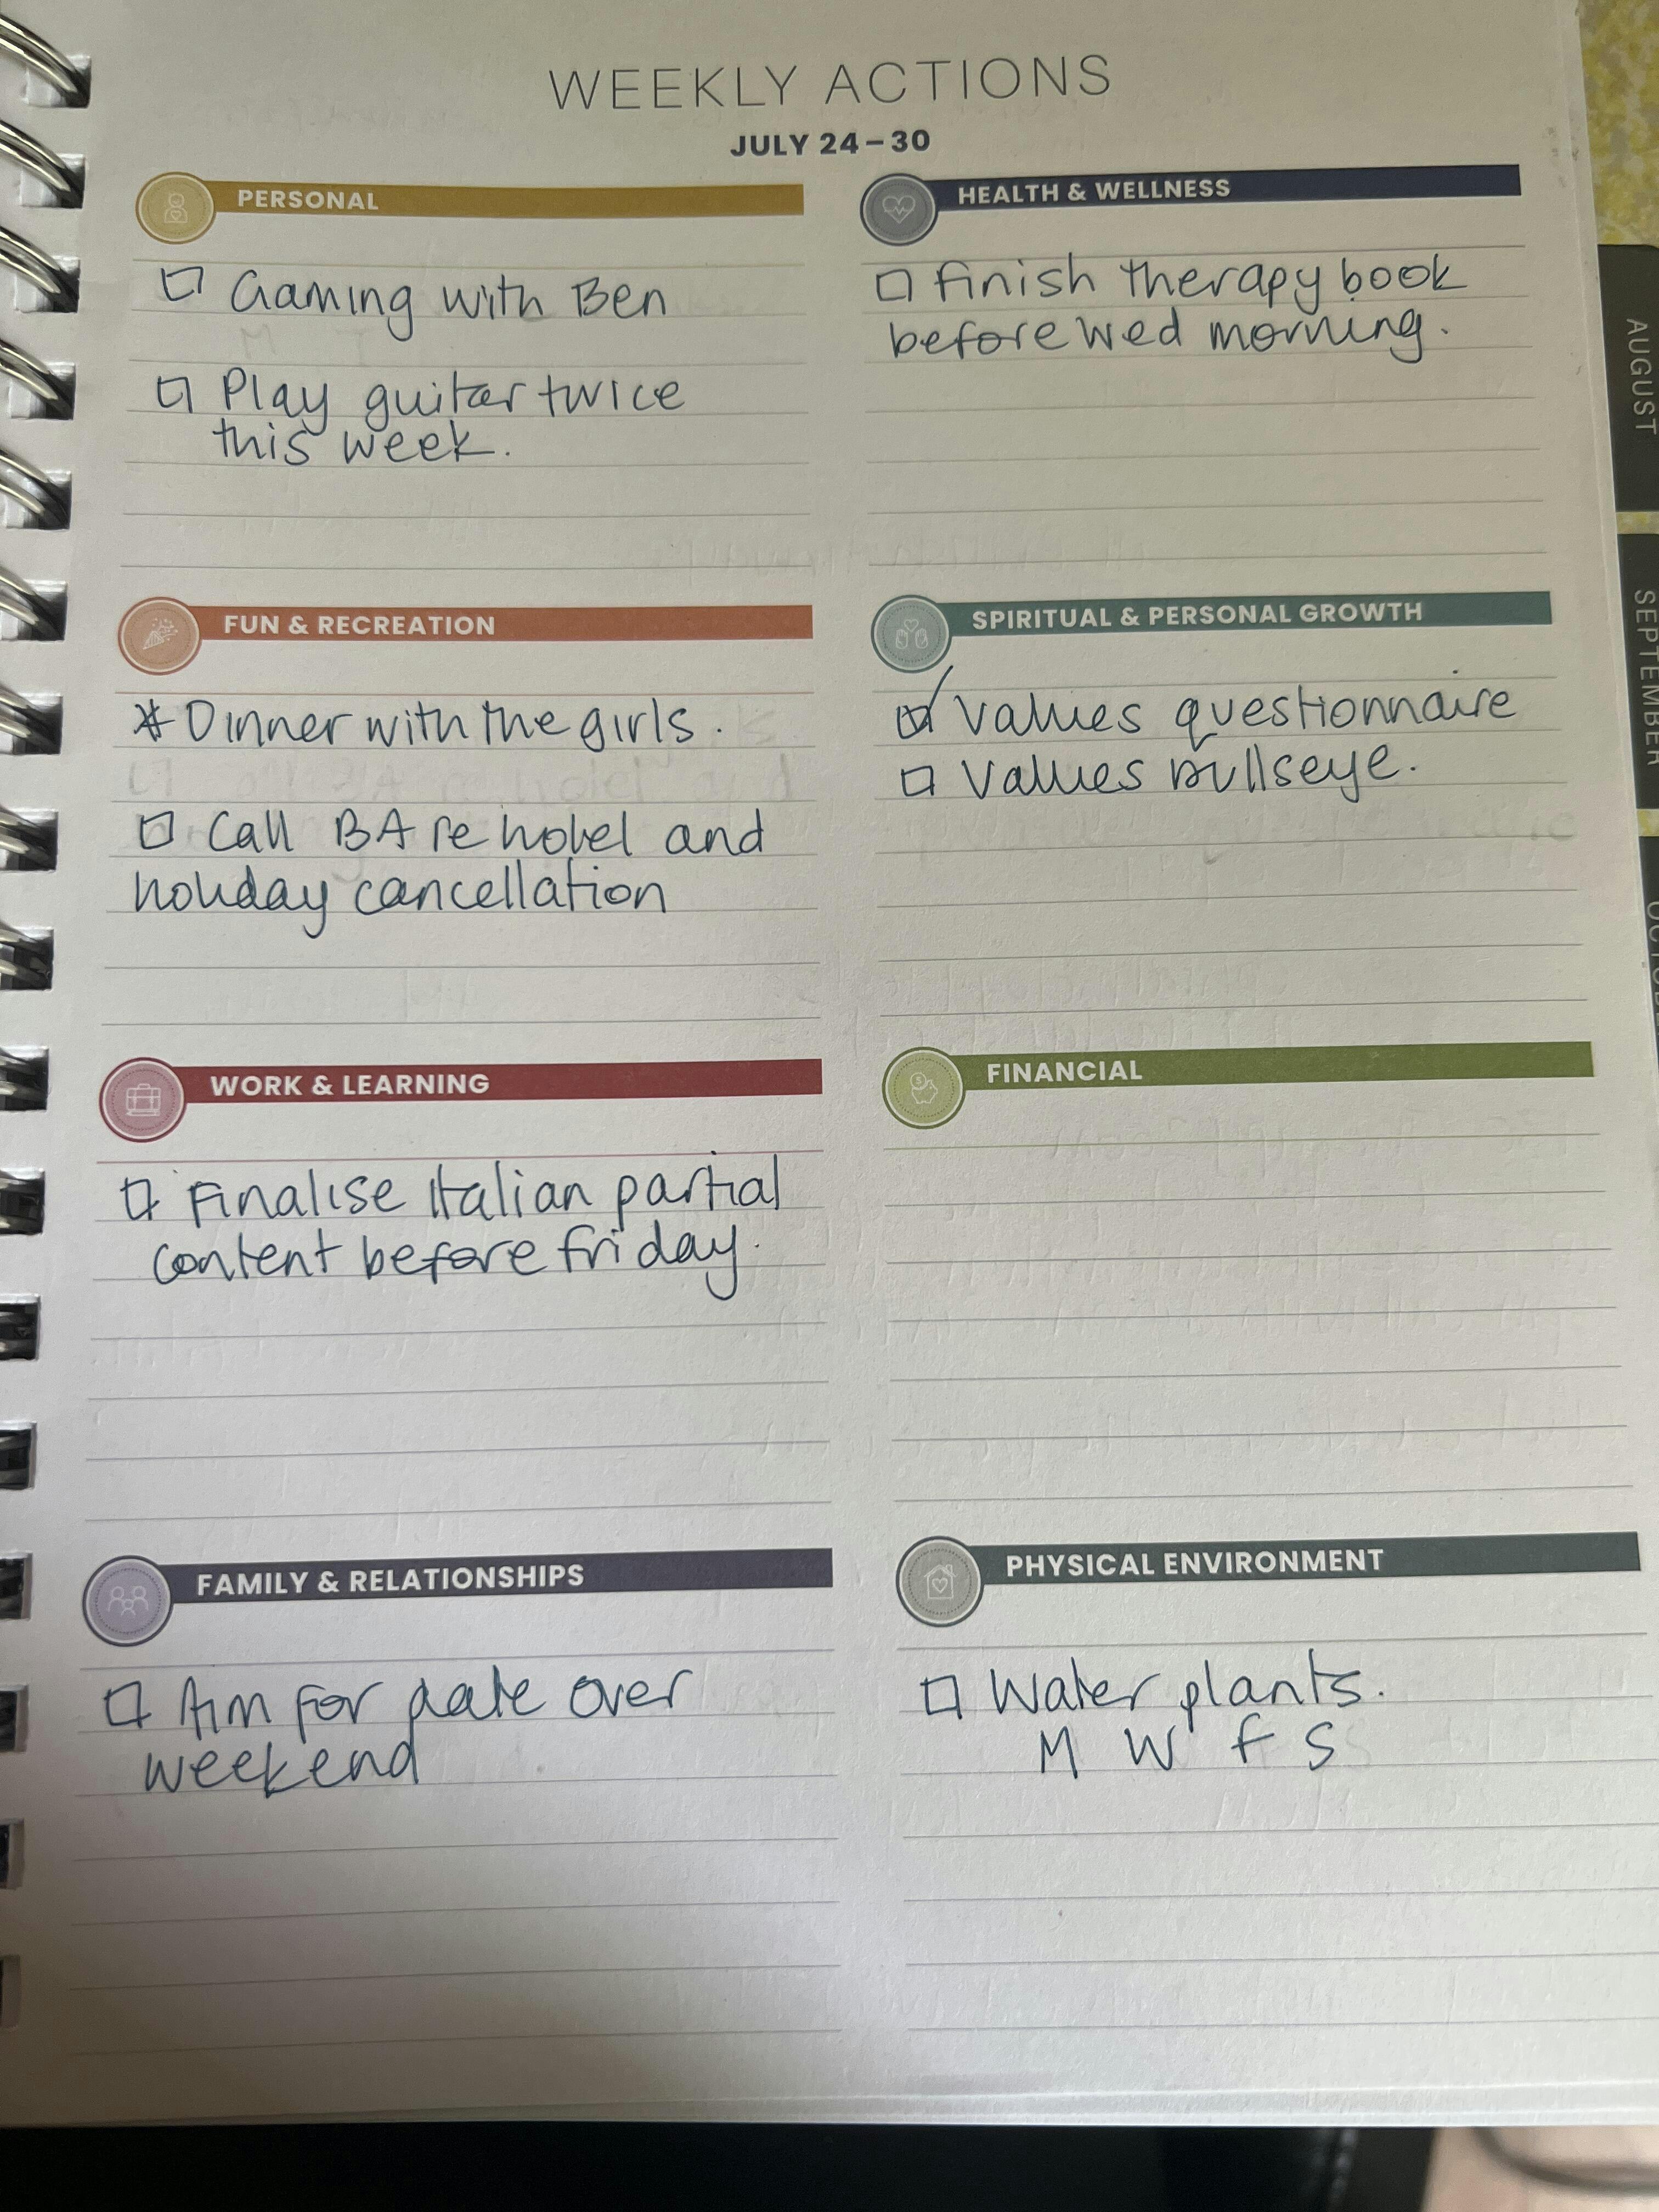 WEEKLY ACTIONS
JULY 24–30
PERSONAL
☐ Gaming with Ben
☐ Play guitar twice
this week.
HEALTH & WELLNESS
☐ Finish therapy book
before wed morning.
FUN & RECREATION
* Dinner with the girls.
☐ Call BA re hotel and
holiday cancellation
SPIRITUAL & PERSONAL GROWTH
☑ Values questionnaire
☐ Values bullseye.
WORK & LEARNING
☐ Finalise Italian partial
content before friday.
FINANCIAL
FAMILY & RELATIONSHIPS
☐ Aim for date over
weekend
PHYSICAL ENVIRONMENT
☐ Water plants.
M W F S
AUGUST
SEPTEMBER